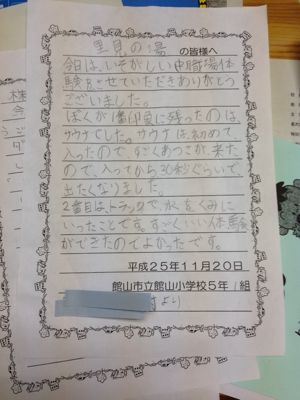 里見の湯 の皆様へ
今日は、いそがしい中職場体
験をさせていただきありがとう
ございました。
ぼくが1番印象に残ったのは、
サウナでした。サウナは、初めて、
入ったので、すごくあつさが来た
ので、入ってから30秒ぐらいで、
出たくなりました。
2番目は、トラックで、水をくみに
いったことです。すごくいい体験
ができたのでよかったです。
平成25年11月20日
館山市立館山小学校5年1組
より
株
会